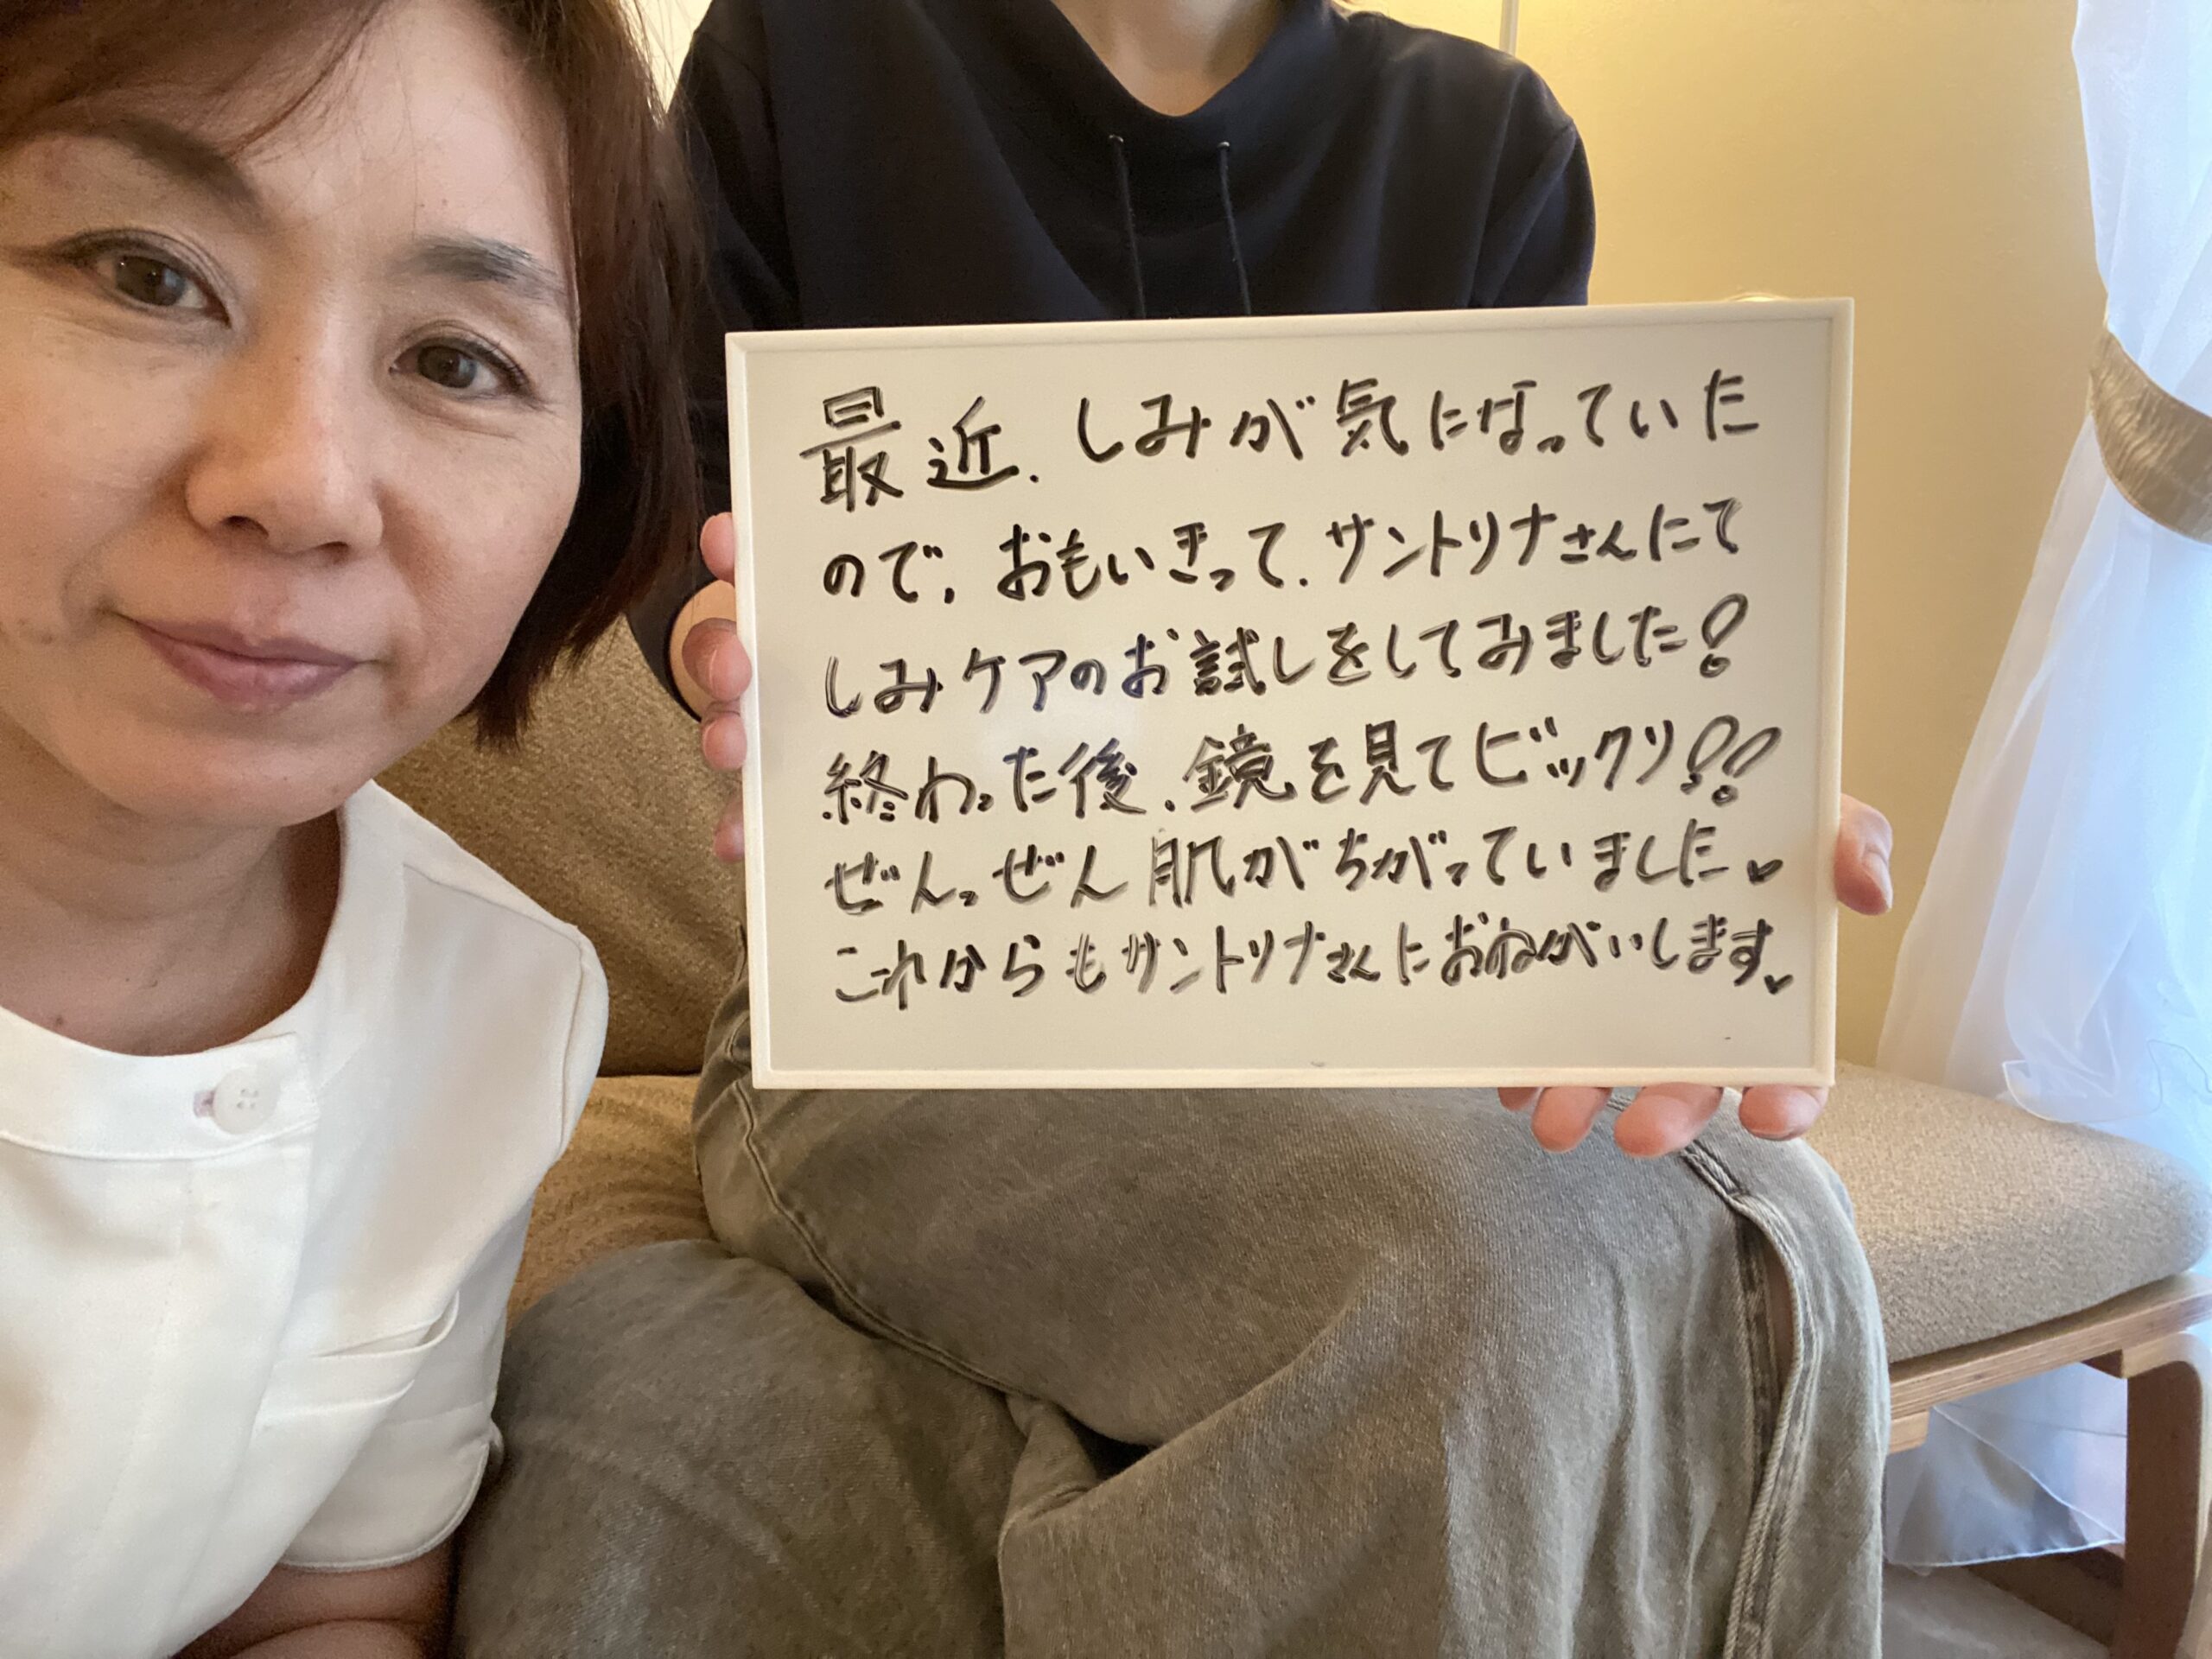 最近、しみが気になっていた
ので、おもいきって、サントリナさんにて
しみケアのお試しをしてみました!
終わった後、鏡を見てビックリ!!
ぜんっぜん肌がちがっていました♥
これからもサントリナさんにおねがいします♥